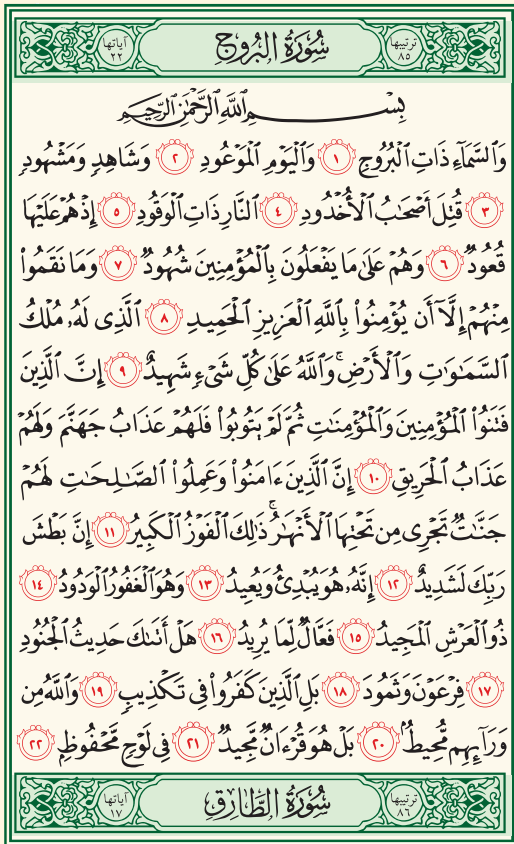 ترتيبها ٨٥ سُورَةُ البُرُوج آياتها ٢٢
بِسْمِ ٱللَّهِ ٱلرَّحْمَٰنِ ٱلرَّحِيمِ
وَٱلسَّمَآءِ ذَاتِ ٱلْبُرُوجِ ١ وَٱلْيَوْمِ ٱلْمَوْعُودِ ٢ وَشَاهِدٍ وَمَشْهُودٍ
٣ قُتِلَ أَصْحَٰبُ ٱلْأُخْدُودِ ٤ ٱلنَّارِ ذَاتِ ٱلْوَقُودِ ٥ إِذْ هُمْ عَلَيْهَا
قُعُودٌ ٦ وَهُمْ عَلَىٰ مَا يَفْعَلُونَ بِٱلْمُؤْمِنِينَ شُهُودٌ ٧ وَمَا نَقَمُوا۟
مِنْهُمْ إِلَّآ أَن يُؤْمِنُوا۟ بِٱللَّهِ ٱلْعَزِيزِ ٱلْحَمِيدِ ٨ ٱلَّذِى لَهُۥ مُلْكُ
ٱلسَّمَٰوَٰتِ وَٱلْأَرْضِ ۚ وَٱللَّهُ عَلَىٰ كُلِّ شَىْءٍ شَهِيدٌ ٩ إِنَّ ٱلَّذِينَ
فَتَنُوا۟ ٱلْمُؤْمِنِينَ وَٱلْمُؤْمِنَٰتِ ثُمَّ لَمْ يَتُوبُوا۟ فَلَهُمْ عَذَابُ جَهَنَّمَ وَلَهُمْ
عَذَابُ ٱلْحَرِيقِ ١٠ إِنَّ ٱلَّذِينَ ءَامَنُوا۟ وَعَمِلُوا۟ ٱلصَّٰلِحَٰتِ لَهُمْ
جَنَّٰتٌ تَجْرِى مِن تَحْتِهَا ٱلْأَنْهَٰرُ ۚ ذَٰلِكَ ٱلْفَوْزُ ٱلْكَبِيرُ ١١ إِنَّ بَطْشَ
رَبِّكَ لَشَدِيدٌ ١٢ إِنَّهُۥ هُوَ يُبْدِئُ وَيُعِيدُ ١٣ وَهُوَ ٱلْغَفُورُ ٱلْوَدُودُ ١٤
ذُو ٱلْعَرْشِ ٱلْمَجِيدُ ١٥ فَعَّالٌ لِّمَا يُرِيدُ ١٦ هَلْ أَتَىٰكَ حَدِيثُ ٱلْجُنُودِ
١٧ فِرْعَوْنَ وَثَمُودَ ١٨ بَلِ ٱلَّذِينَ كَفَرُوا۟ فِى تَكْذِيبٍ ١٩ وَٱللَّهُ مِن
وَرَآئِهِم مُّحِيطٌۢ ٢٠ بَلْ هُوَ قُرْءَانٌ مَّجِيدٌ ٢١ فِى لَوْحٍ مَّحْفُوظٍۭ ٢٢
ترتيبها ٨٦ سُورَةُ الطَّارِق آياتها ١٧